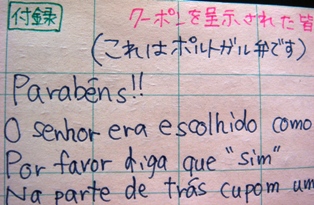 付録
クーポンを呈示された皆
(これはポルトガル弁です)
Parabéns!!
O senhor era escolhido como
Por favor diga que "sim"
Na parte de trás cupom um